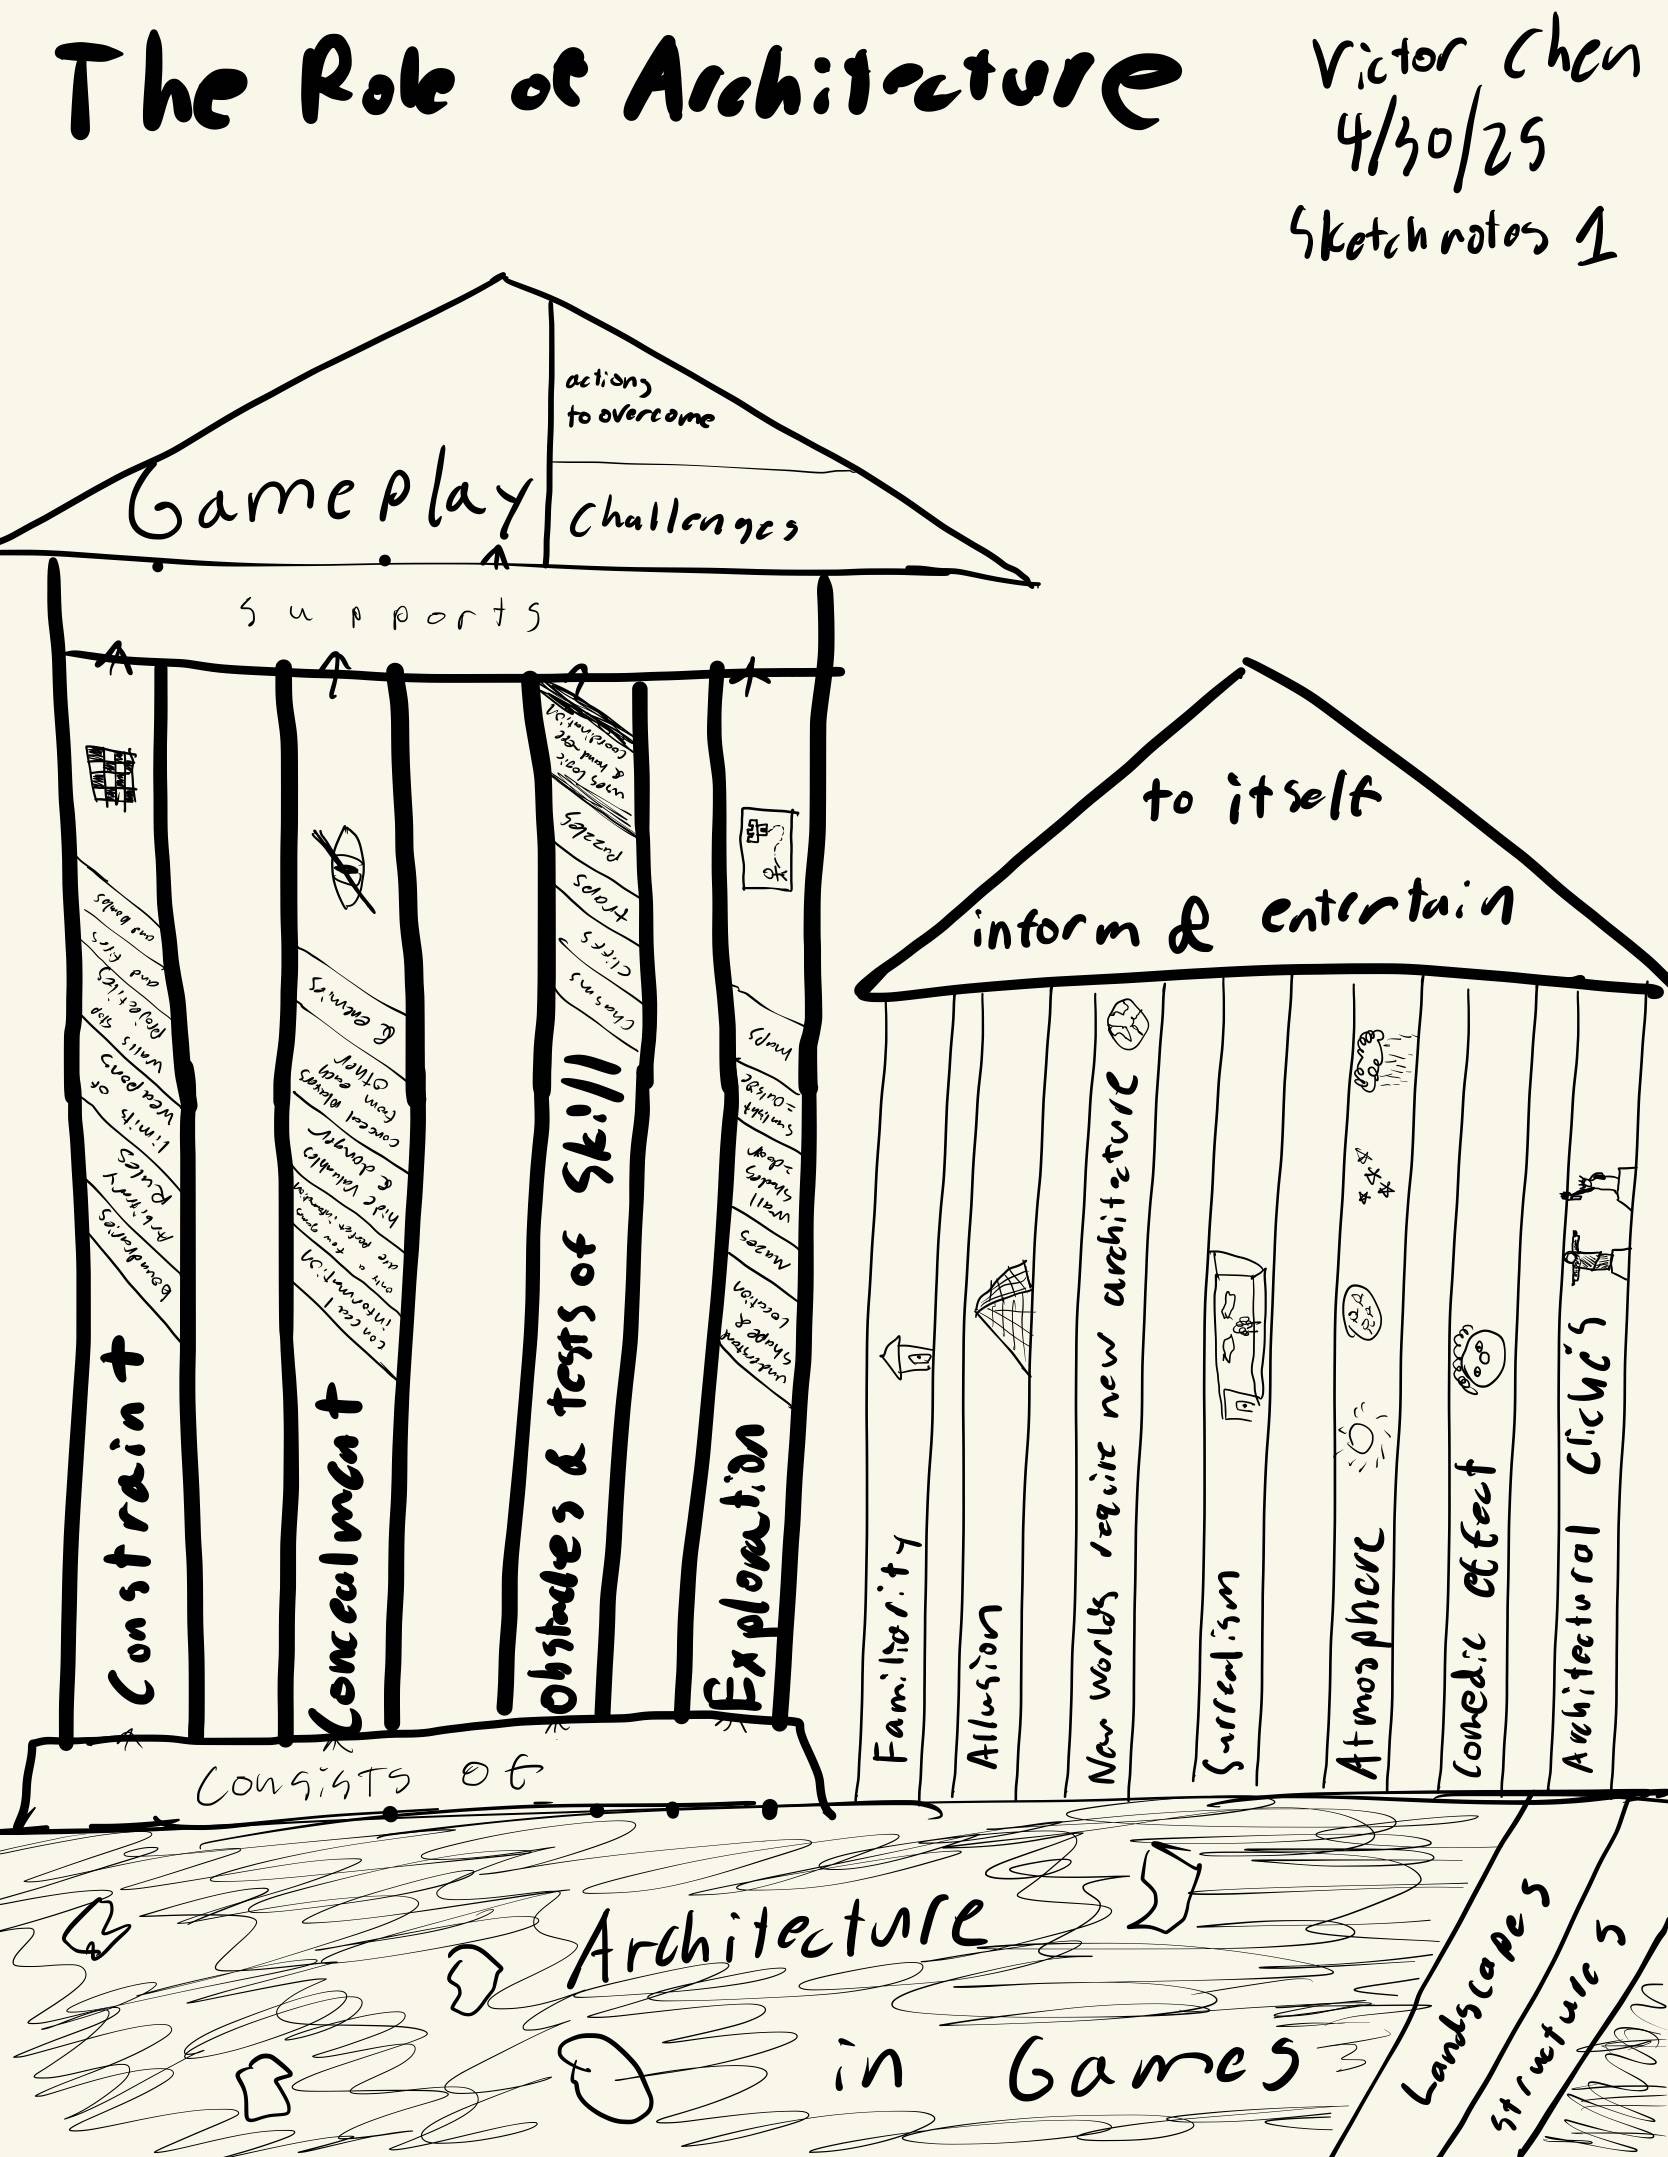 The Role of Architecture
Victor Chen
4/30/25
Sketchnotes 1
actions
to overcome
Gameplay
Challenges
supports
Constraint
boundraries
Arbitrary
Rules
Limits
of
weapons
walls stop
Projectiles
and fires
and bombs
Concealment
conceal
information
only a few games
are perfect information
hide valuables
& danger
conceal players
from each
other
& enemies
Obstacles & tests of skill
Chasms
cliffs
traps
puzzles
uses logic
& hand-eye
coordination
Exploration
understand
shape &
Location
Mazes
wall
shades
=door
sunlight
=outside
maps
consists of
to itself
inform & entertain
Familiority
Allusion
New worlds require new architecture
Surrealism
Atmosphere
Comedic effect
Architectural Cliché's
Architecture
in Games
Landscapes
structures